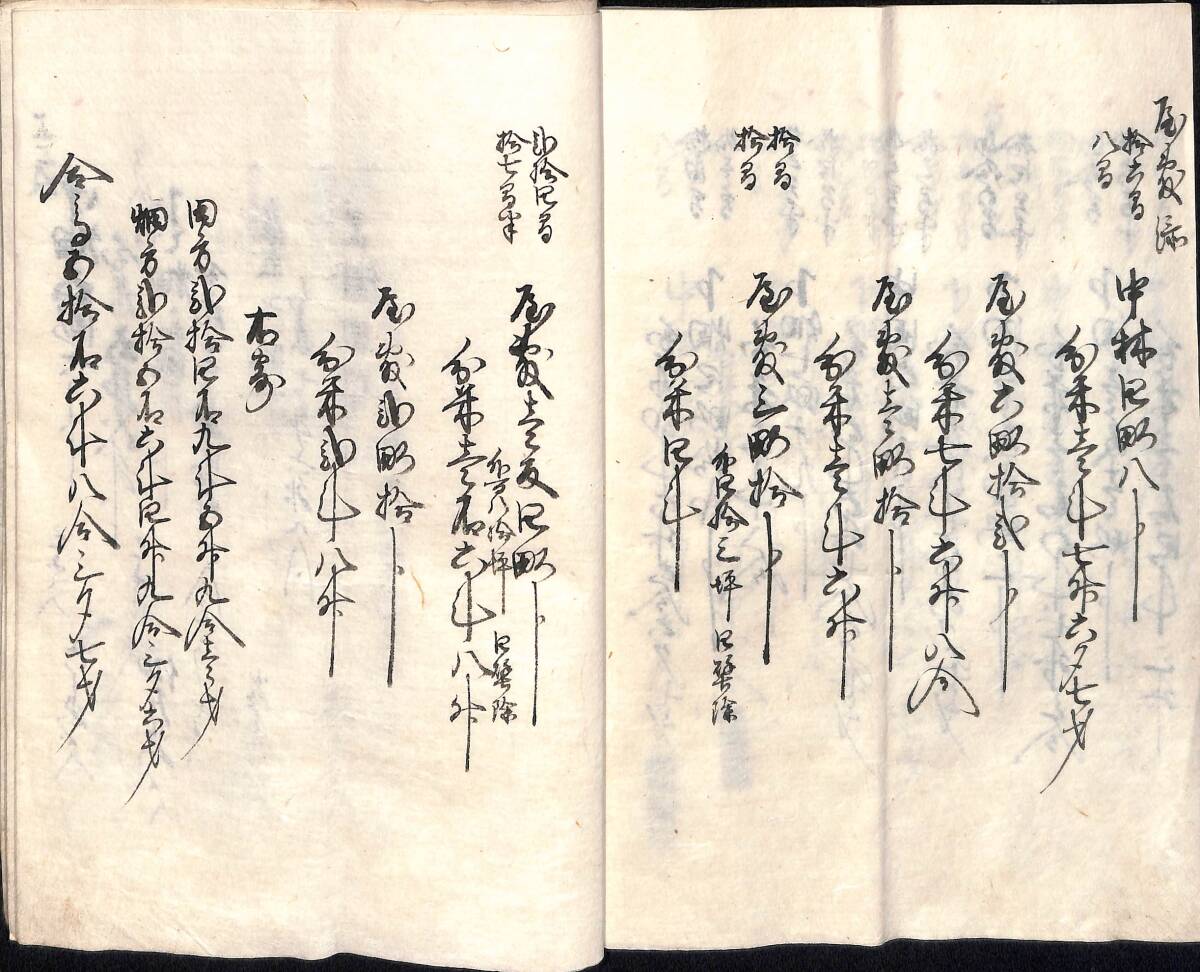 屋敷添
拾六間
八間
中林四畝八歩
分米壱斗七升六夕七才
屋敷六畝拾弐歩
分米七斗六升八合
屋敷壱畝拾歩
分米壱斗六升
拾間
拾間
屋敷三畝拾歩
内拾三坪 四壁除
分米四斗
弐拾四間
拾七間半
屋敷壱反四畝歩
内八拾坪 四壁除
分米壱石六斗八升
屋敷弐畝拾歩
分米弐斗八升
右寄
田方弐拾四石九斗五升九合壱才
畑方弐拾五石六斗四升九合三夕六才
合高五拾石六斗八合三夕七才